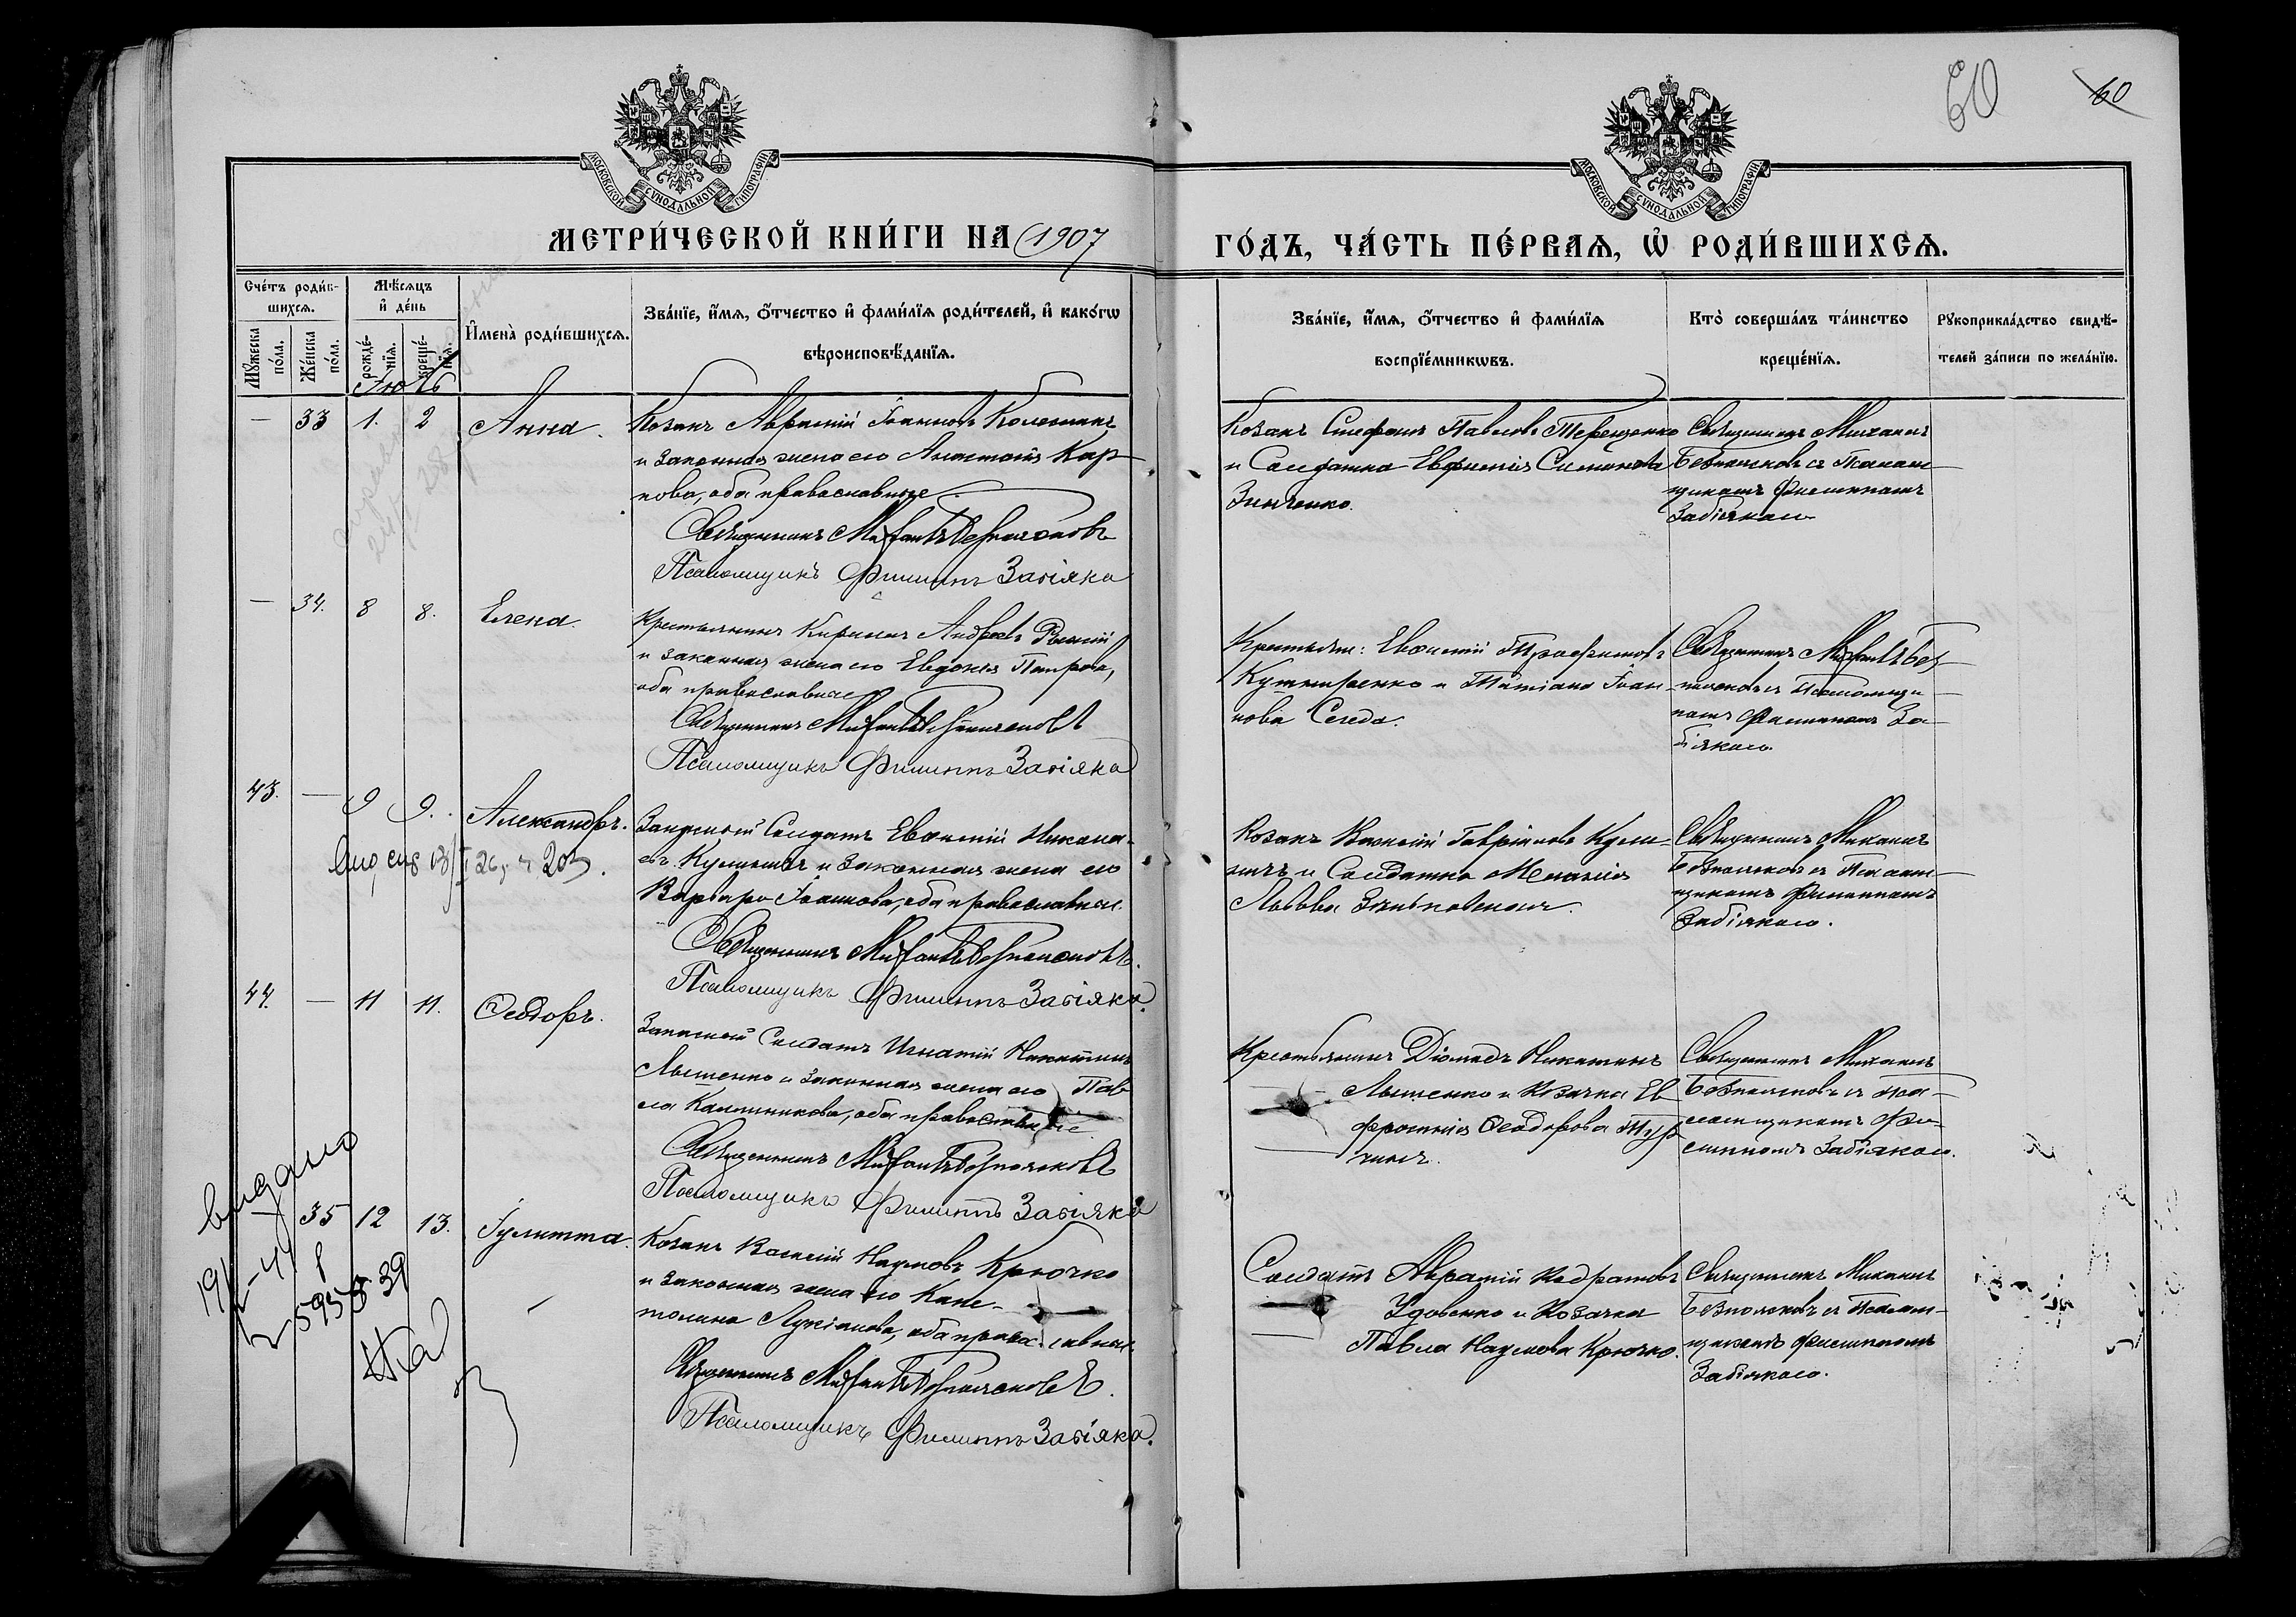 60
60
МОСКОВСКОЙ СѴНОДАЛЬНОЙ ТИПОГРАФІИ
МОСКОВСКОЙ СѴНОДАЛЬНОЙ ТИПОГРАФІИ
МЕТРИ́ЧЕСКОЙ КНИ́ГИ НА 1907
ГО́ДЪ, ЧА́СТЬ ПЕ́РВАѦ, Ѽ РОДИ́ВШИХСѦ.
Сче́тъ роди́в-
шихсѧ.
Мꙋжеска
по́ла.
Же́нска
по́ла.
Мѣ́сѧцъ
и҆ де́нь
рожде́-
нїѧ.
креще́-
нїѧ.
И҆мена̀ роди́вшихсѧ.
Зва́нїе, и҆́мѧ, ѻ҆́тчество и҆ фами́лїѧ роди́телей, и҆ како́гѡ
вѣроисповѣ́данїѧ.
Зва́нїе, и҆́мѧ, ѻ҆́тчество и҆ фами́лїѧ
воспрїе́мникѡвъ.
Кто̀ соверша́лъ та́инство
креще́нїѧ.
Рꙋкоприкла́дство свидѣ́-
телей за́писи по жела́нїю.
Іюль
— 33 1. 2 Анна.
Козакъ Авраамій Іоанновъ
и законная жена его Анастасія Кар
пова, оба православные
Священникъ Михаилъ Безпалчовъ
Псаломщикъ Филиппъ Забіяка
Козакъ Стефанъ Павловъ Терещенко
и Солдатка Евфимія Симонова
Зинченко.
Священникъ Михаилъ
съ Псалом
щикомъ Филиппомъ
Забіякою
— 34. 8 8. Елена.
Крестьянинъ Кириллъ Андреевъ
и законная жена его Евдокія Петрова,
оба православные
Священникъ Михаилъ
Псаломщикъ Филиппъ Забіяка
Крестьяне: Евѳимій Трофимовъ
и Татіана Іоан
нова Середа.
Священникъ Михаилъ Без
съ Псаломщи
комъ Филиппомъ За-
біякою
43. — 9 9. Александръ.
Запасной Солдатъ Евѳимій Никола-
евъ и законная жена его
Варвара Іоаннова, оба православные.
Священникъ Михаилъ
Псаломщикъ Филиппъ Забіяка.
Козакъ Василій Гавріиловъ Кули-
и Солдатка Меланія
Львова
Священникъ Михаилъ
съ Псалом
щикомъ Филиппомъ
Забіякою.
44. — 11 11. Ѳеодоръ.
Запасной Солдатъ Игнатій Никитинъ
Лытенко и законная жена его Пав
ла Каллиникова, оба православные
Священникъ Михаилъ
Псаломщикъ Филиппъ Забіяка
Крестьянинъ Діомидъ Никитинъ
Лытенко и Козачка Ев
фросинія Ѳеодорова
Священникъ Михаилъ
съ Пса-
ломщикомъ Фи-
липпомъ Забіякою.
видано
35 12 13. Іулитта.
Козакъ Василій Наумовъ Крючко
и законная жена его Капи-
толина Лукіанова, оба православные
Священникъ Михаилъ
Псаломщикъ Филиппъ Забіяка.
Солдатъ Авраамій Кодратовъ
Удовенко и Козачка
Павла Наумова Крючко.
Священникъ Михаилъ
съ Псалом-
щикомъ Филиппомъ
Забіякою.